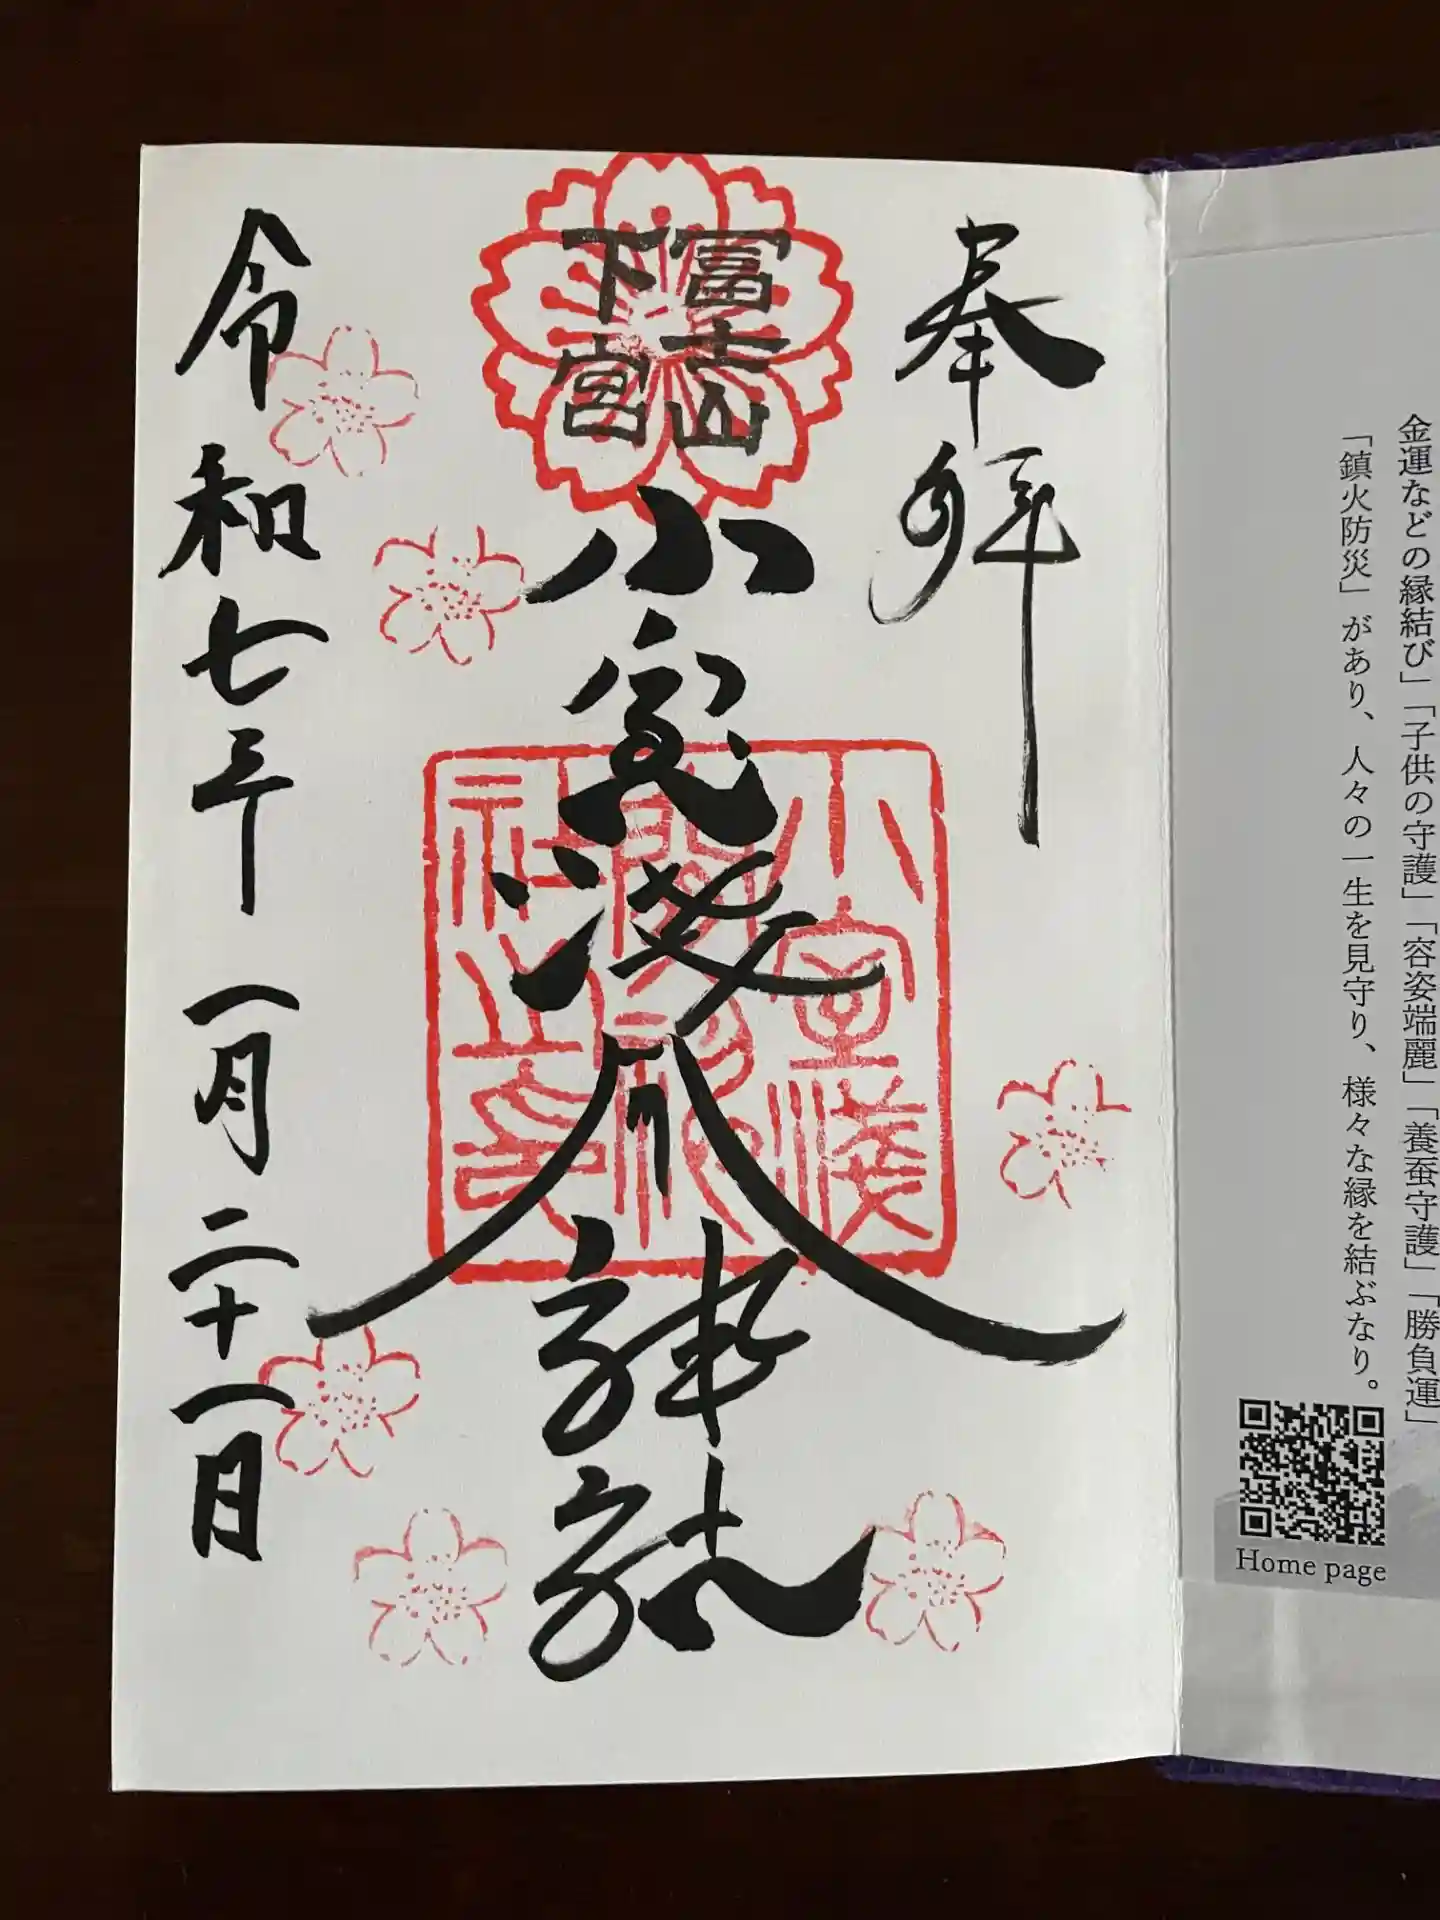 金運などの縁結び」「子供の守護」「容姿端麗」「養蚕守護」「勝負運」
「鎮火防災」があり、人々の一生を見守り、様々な縁を結ぶなり。
Home page
奉拝
冨士山
下宮
小室浅間神社
小室淺
間神
社之印
令和七年一月二十一日